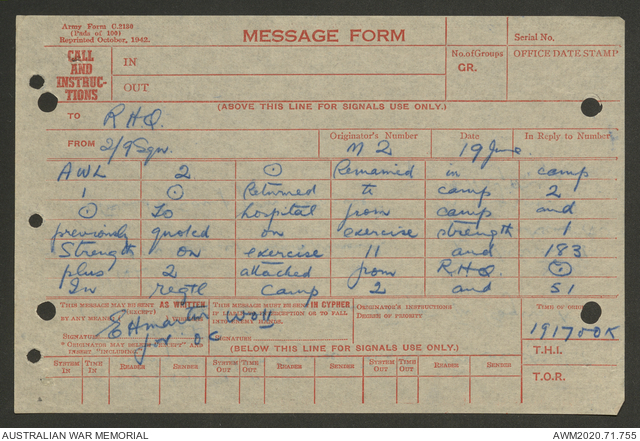 Army Form C.2136
(Pads of 100)
Reprinted October, 1942.
MESSAGE FORM
Serial No.
CALL AND INSTRUC-TIONS
IN
OUT
No. of Groups
GR.
OFFICE DATE STAMP
(ABOVE THIS LINE FOR SIGNALS USE ONLY.)
TO RHQ.
FROM 2/9 Sqn.
Originator's Number M 2
Date 19 June
In Reply to Number
AWL 2 ⊙ Remained in camp
1 ⊙ Returned to camp 2
⊙ To hospital from camp and
previously quoted on exercise strength 1
Strength on exercise 11 and 183
plus 2 attached from RHQ ⊙
In regtl camp 2 and 51
THIS MESSAGE MAY BE SENT AS WRITTEN
(EXCEPT)
BY ANY MEANS
THIS MESSAGE MUST BE SENT IN CYPHER
IF LIABLE TO INTERCEPTION OR TO FALL INTO ENEMY HANDS.
ORIGINATOR'S INSTRUCTIONS
DEGREE OF PRIORITY
TIME OF ORIGIN
EHMartin
for OC
191700K
SIGNATURE
SIGNATURE
(BELOW THIS LINE FOR SIGNALS USE ONLY.)
T.H.I.
SYSTEM IN TIME IN READER SENDER SYSTEM OUT TIME OUT READER SENDER SYSTEM OUT TIME OUT READER SENDER
T.O.R.
AUSTRALIAN WAR MEMORIAL
AWM2020.71.755